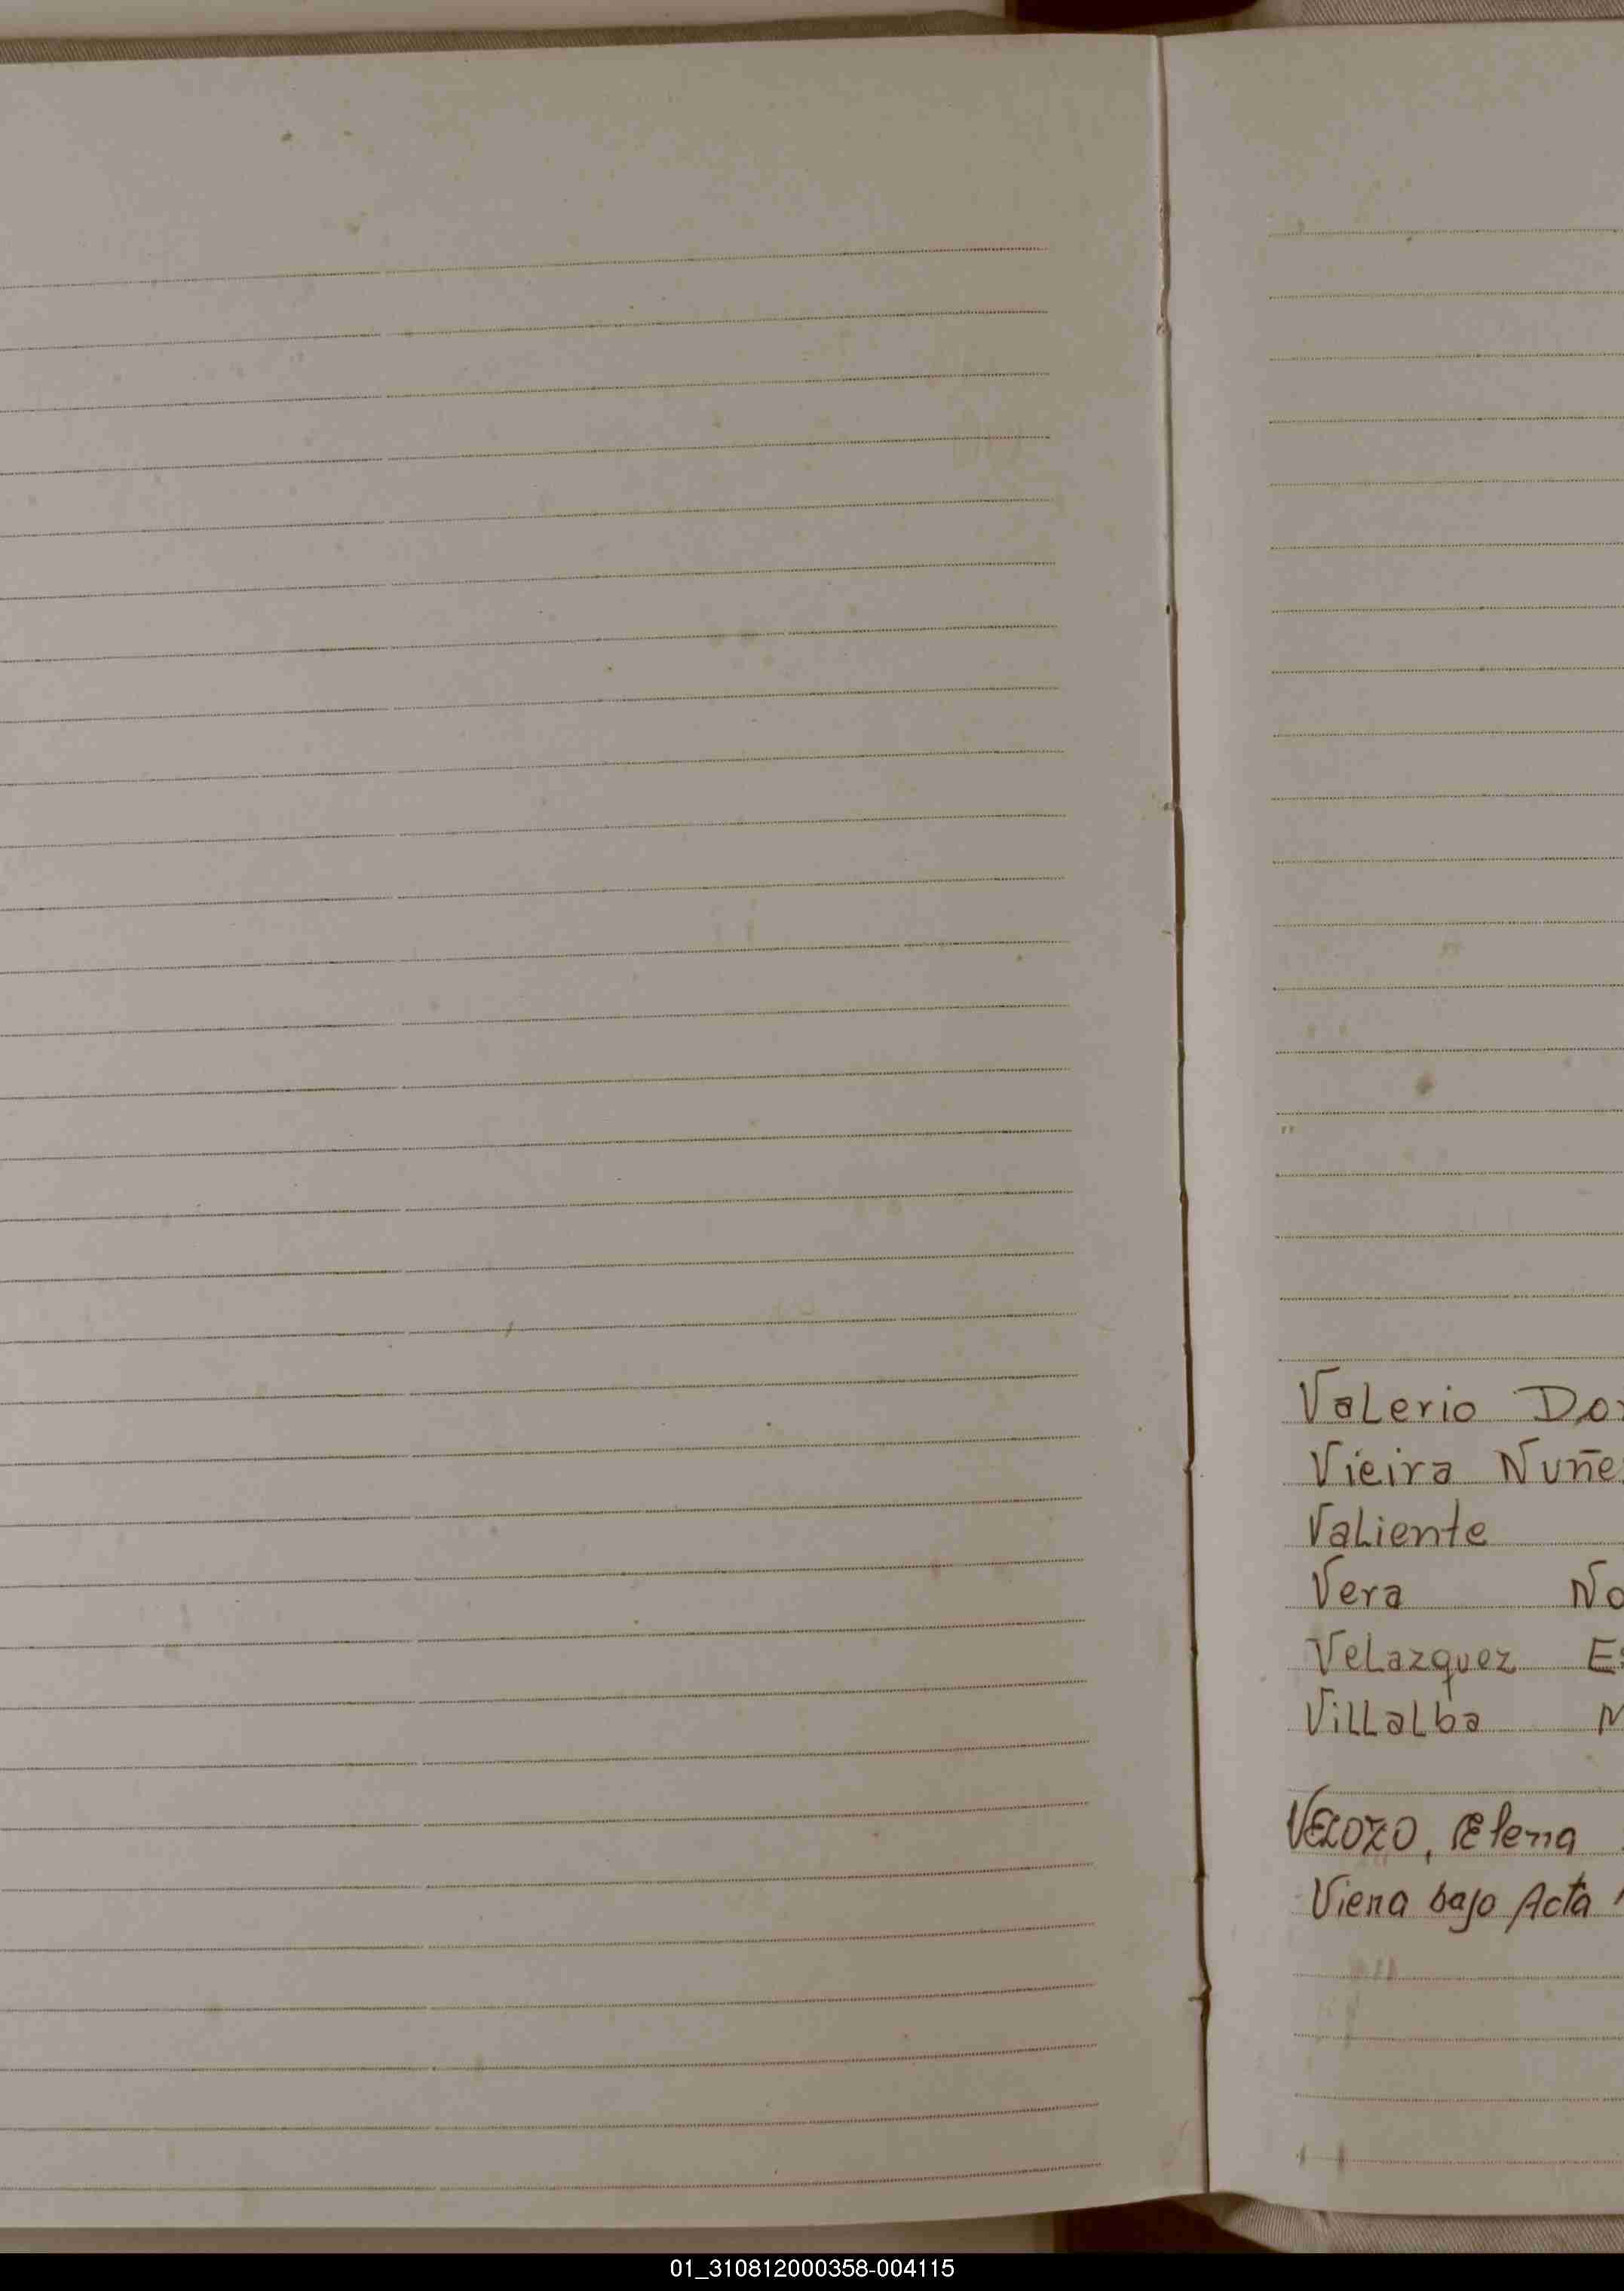 Valerio Do
Vieira Nuñe
Valiente
Vera No
Velazquez Es
Villalba
VELOZO, Elena
Viena bajo Acta
01_310812000358-004115